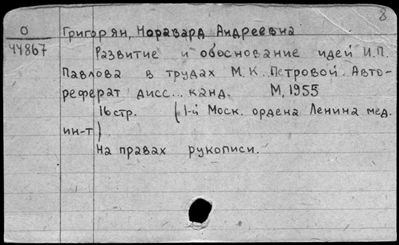 8
О
44867
Григорян, Норавард Андреевна
Развитие и обоснование идей И.П.
Павлова в трудах М.К. Петровой. Авто-
реферат дисс... канд. М, 1955
16 стр. (1-й Моск. ордена Ленина мед.
ин-т)
На правах рукописи.